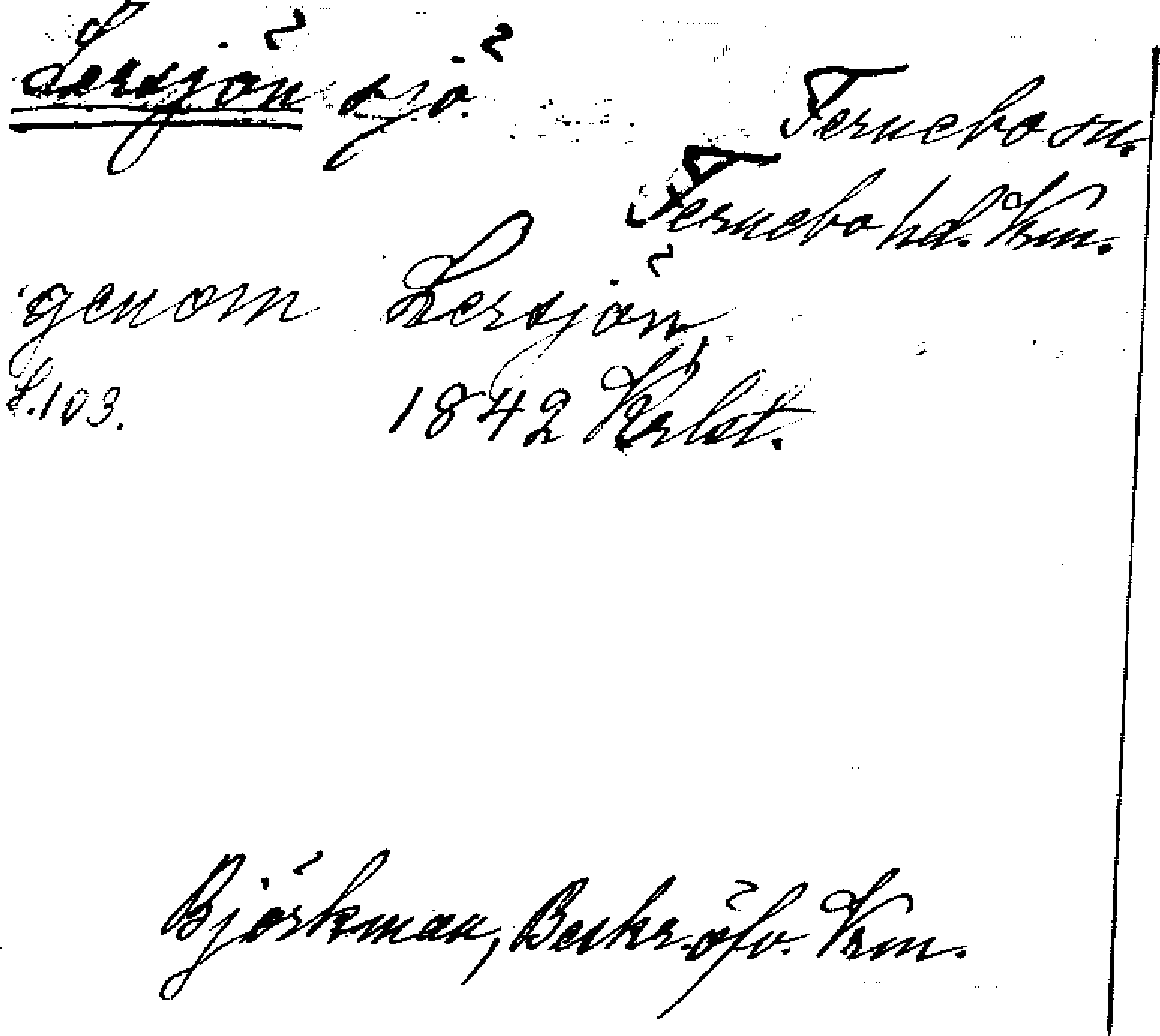 Lersjön sjö.
Fernebo sn.
Fernebo hd. Vrm.
genom Lersjön
S.103. 1842 Krlst.
Björkman, Beskr. öfv. Vrm.